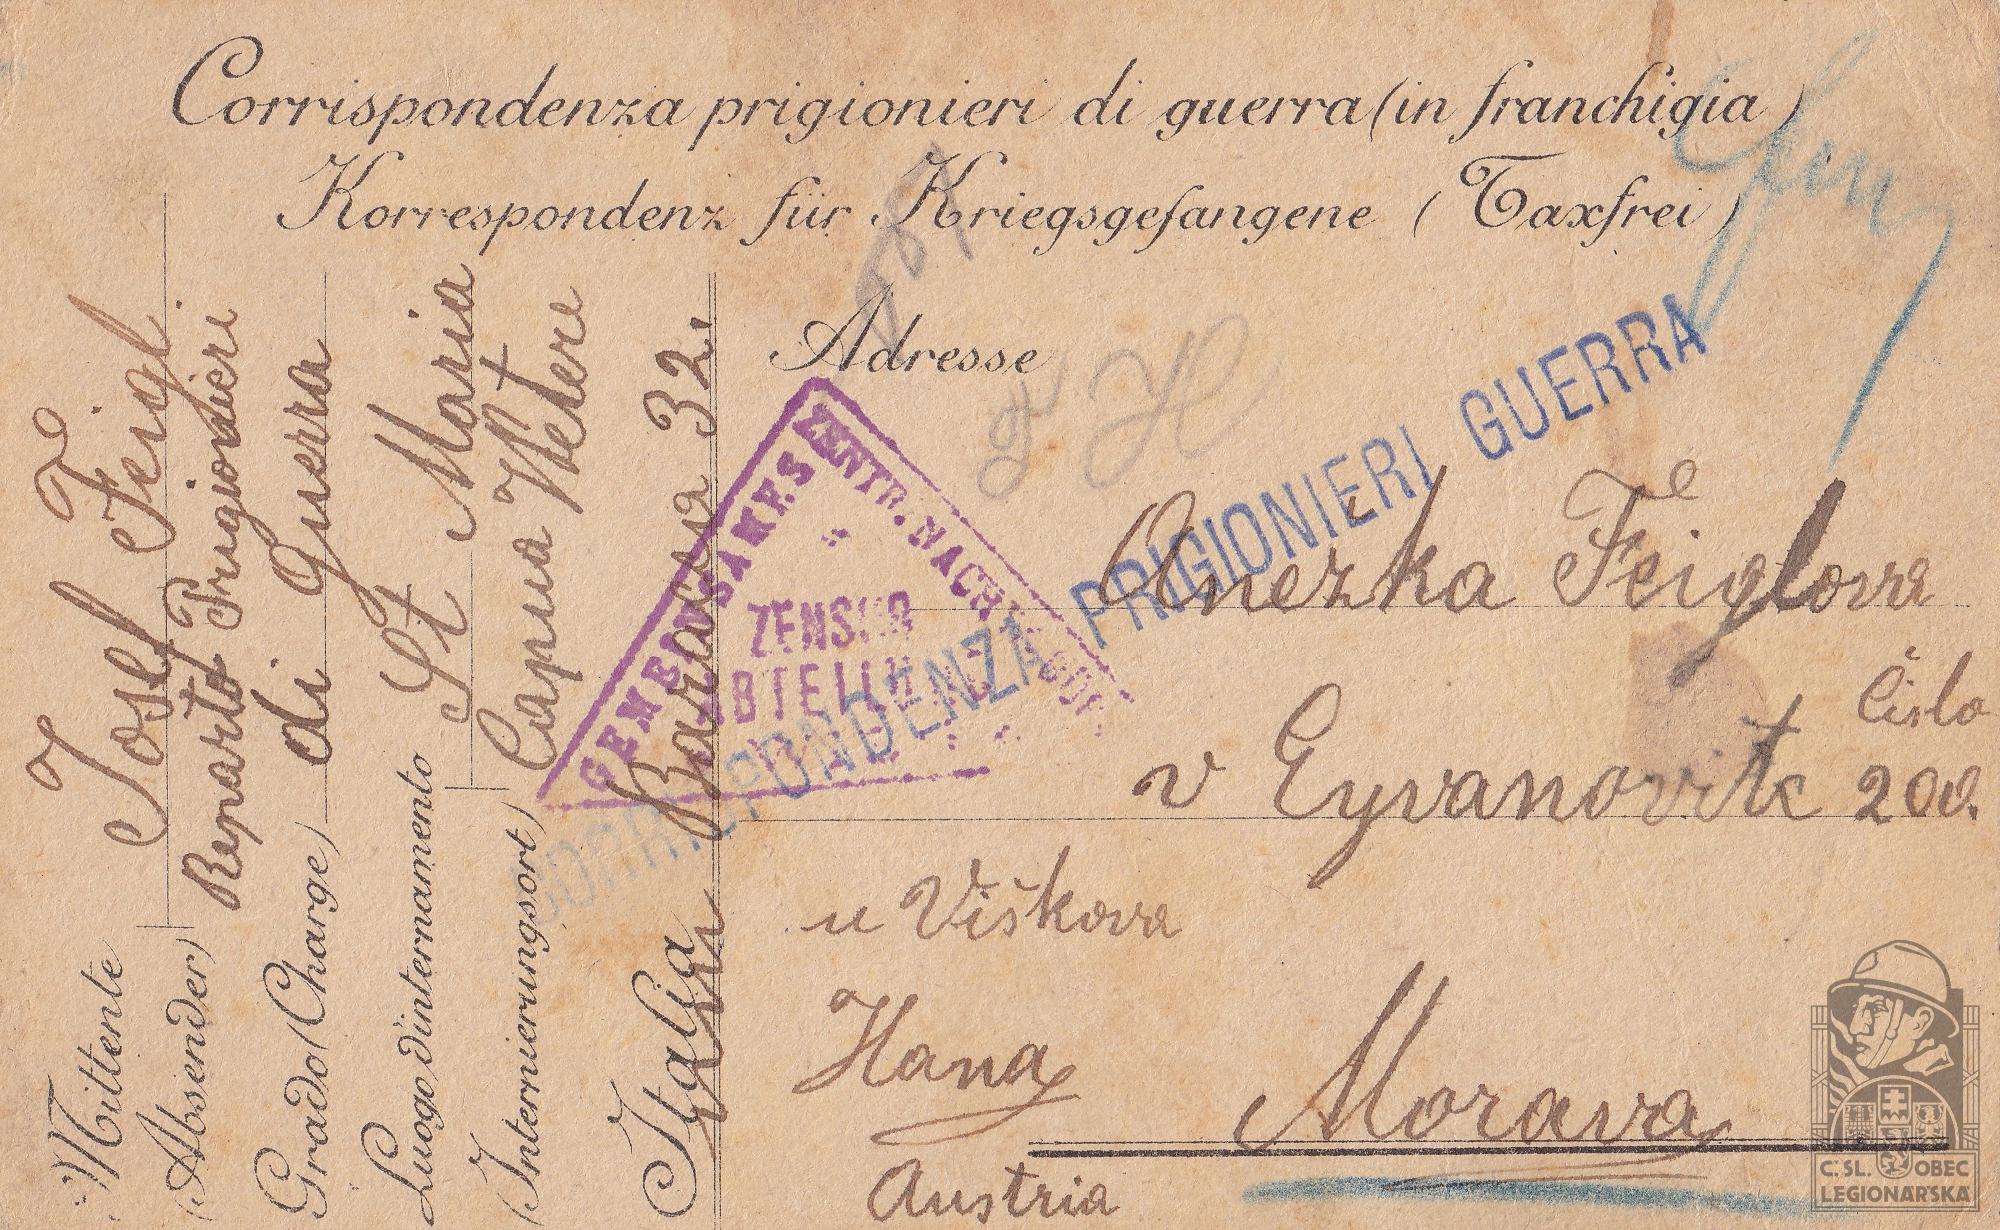 Corrispondenza prigionieri di guerra (in franchigia)
Korrespondenz für Kriegsgefangene (Taxfrei)
Mittente
(Absender)
Josef Feigl
Reparto Prigionieri
Grado (Charge)
di guerra
Luogo d'internamento
(Internierungsort)
St Maria
Capua Vetere
Italia
Baracca 32.
Adresse
F H
GEMEINSAMES ZENTR. NACHW
ZENSUR
ABTEILUNG
CORRISPONDENZA PRIGIONIERI GUERRA
Anežka Feiglova
Čislo
v Eyvanovitc 200.
u Viškova
Hana
Morava
Austria
Č. SL. OBEC
LEGIONÁŘSKÁ